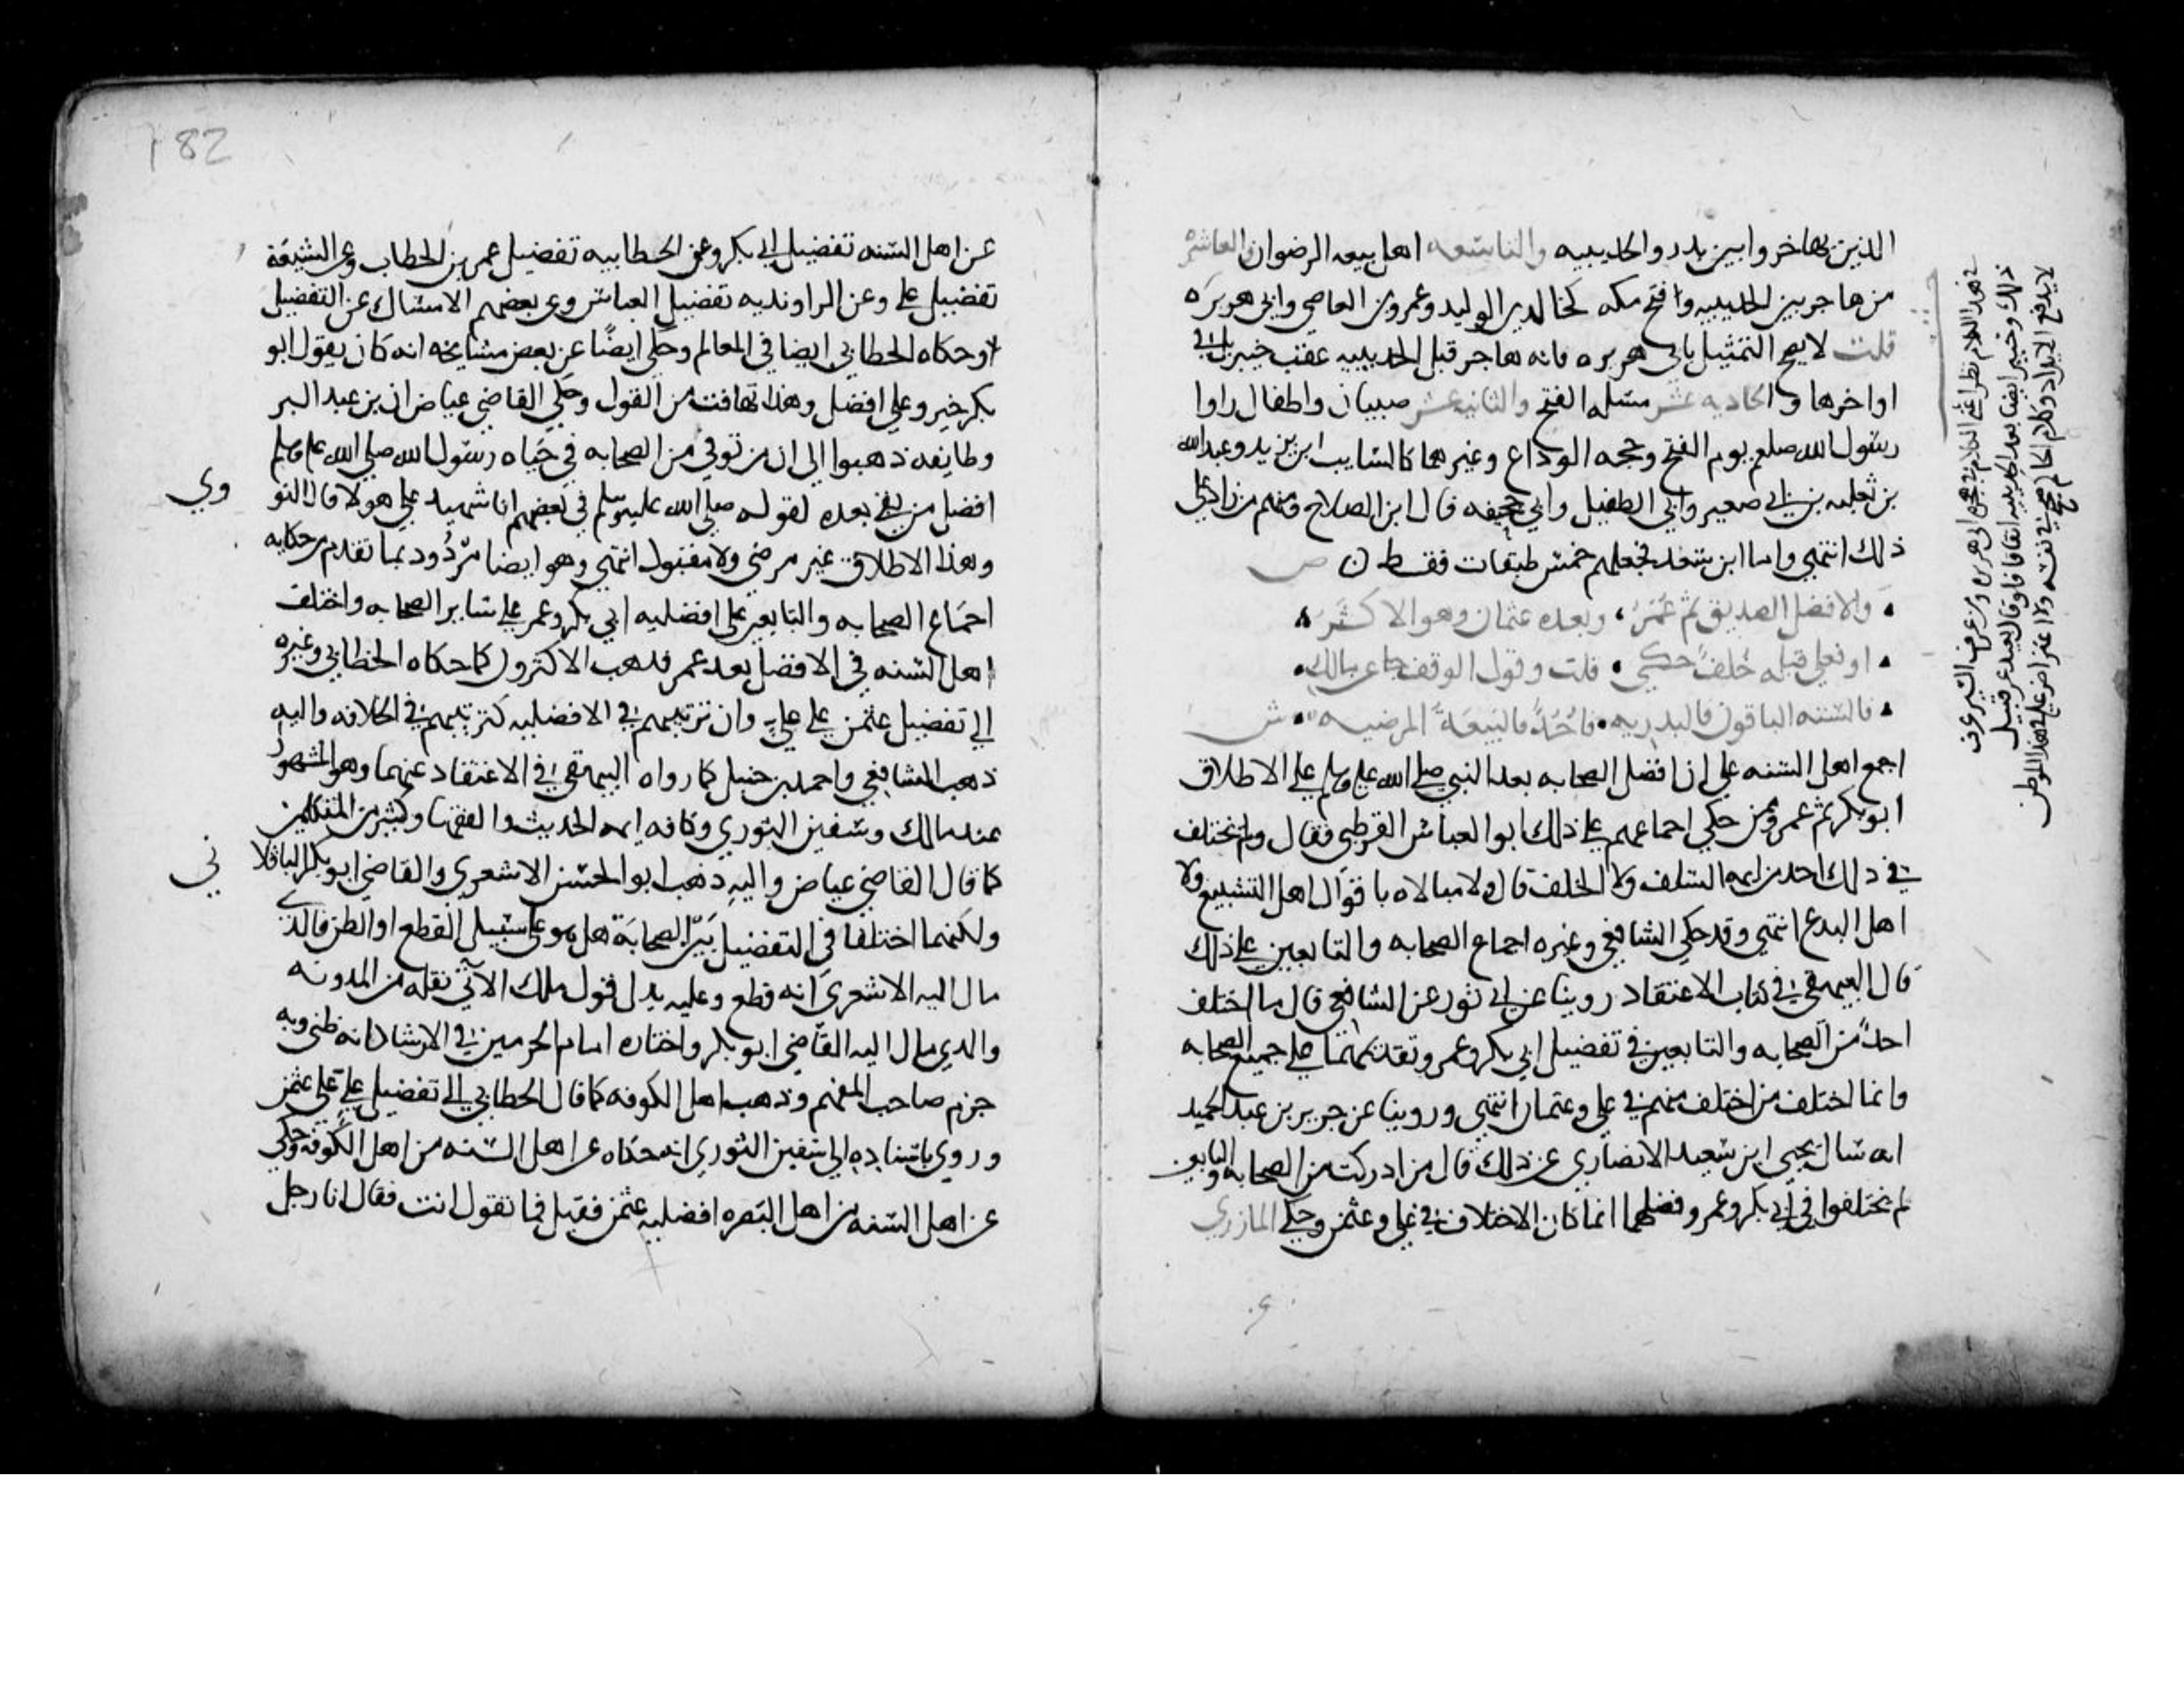 الذين هاجروا بين بدر والحديبيه والتاسعه اهل بيعه الرضوان والعاشره
من هاجر بين الحديبيه وافتح مكه كخالد بن الوليد وعمرو بن العاصي وابي هريره
قلت لا يصح التمثيل بابي هريره فانه هاجر قبل الحديبيه عقب خيبر بل في
اواخرها والحاديه عشر مسلمه الفتح والثانيه عشر صبيان واطفال راوا
رسول الله صلعم يوم الفتح وحجه الوداع وغيرهما كالسايب ابن يزيد وعبد الله
بن ثعلبه بن ابي صعير وابي الطفيل وابي جحيفه قال ابن الصلاح ومنهم من زاد على
ذلك انتهي واما ابن سعد فجعلهم خمس طبقات فقط ن ص
والافضل الصديق ثم عمر، وبعده عثمان وهو الاكثر
او فعلي قبله خلف حكي . قلت وقول الوقف جا عن مالك .
فالستة الباقون فالبدريه . فاحد فالبيعة المرضيه . ش
اجمع اهل السنه على ان افضل الصحابه بعد النبي صلى الله عليه وسلم على الاطلاق
ابو بكر ثم عمر وممن حكي اجماعهم على ذلك ابو العباس القرطبي فقال ولم يختلف
في ذلك احد من ايمه السلف ولا الخلف قال ولا مبالاه باقوال اهل التشيع ولا
اهل البدع انتهي وقد حكي الشافعي وغيره اجماع الصحابه والتابعين على ذلك
قال البيهقي في كتاب الاعتقاد روينا عن ابي ثور عن الشافعي قال ما اختلف
احد من الصحابه والتابعين في تفضيل ابي بكر وعمر وتقديمهما على جميع الصحابه
وانما اختلف من اختلف منهم في علي وعثمان انتهي وروينا عن جرير بن عبد الحميد
انه سال يحيي ابن سعيد الانصاري عن ذلك فقال من ادركت من الصحابه والتابعين
لم يختلفوا في ابي بكر وعمر وفضلهما انما كان الاختلاف في علي وعثمن وحكي المازري
في هذا الكلام نظر اعني الكلام في هجره ابي هريره ومن عرف السير عرف
ذلك وخيبر ايضا بعد الحديبيه اتفاقا
182
عن اهل السنه تفضيل ابي بكر وعن الخطابيه تفضيل عمر بن الخطاب وعن الشيعة
تفضيل علي وعن الراونديه تفضيل العباس وعن بعضهم الامساك عن التفضيل
وحكاه الخطابي ايضا في المعالم وحكي ايضا عن بعض مشايخه انه كان يقول ابو
بكر خير وعلي افضل وهذا تهافت من القول وحكي القاضي عياض ان بن عبد البر
وطايفه ذهبوا الى ان من توفي من الصحابه في حياه رسول الله صلى الله عليه وسلم
افضل من بقي بعده لقوله صلى الله عليه وسلم في بعضهم انا شهيد علي هولا قال النو
وي
وهذا الاطلاق غير مرضي ولا مقبول انتهي وهو ايضا مردود بما تقدم من حكايه
اجماع الصحابه والتابعين على افضليه ابي بكر وعمر على ساير الصحابه واختلف
اهل السنه في الافضل بعد عمر فذهب الاكثرون كما حكاه الخطابي وغيره
الى تفضيل عثمن على علي وان ترتيبهم في الافضليه كترتيبهم في الخلافه واليه
ذهب الشافعي واحمد بن حنبل كما رواه البيهقي في الاعتقاد عنهما وهو المشهور
عند مالك وسفين الثوري وكافه ايمه الحديث والفقها وكثير من المتكلمين
كما قال القاضي عياض واليه ذهب ابو الحسن الاشعري والقاضي ابو بكر الباقلا
ني
ولكنهما اختلفا في التفضيل بين الصحابة هل هو على سبيل القطع او الظن فالذي
مال اليه الاشعري انه قطع وعليه يدل قول ملك الآتي نقله من المدونه
والذي مال اليه القاضي ابو بكر واختاره امام الحرمين في الارشاد انه ظني وبه
جزم صاحب المفهم وذهب اهل الكوفه كما قال الخطابي الى تفضيل علي على عثمن
وروي باسناده الى سفين الثوري انه حكاه عن اهل السنه من اهل الكوفة وحكي
عن اهل السنه من اهل البصره افضليه عثمن فقيل فما تقول انت فقال انا رجل